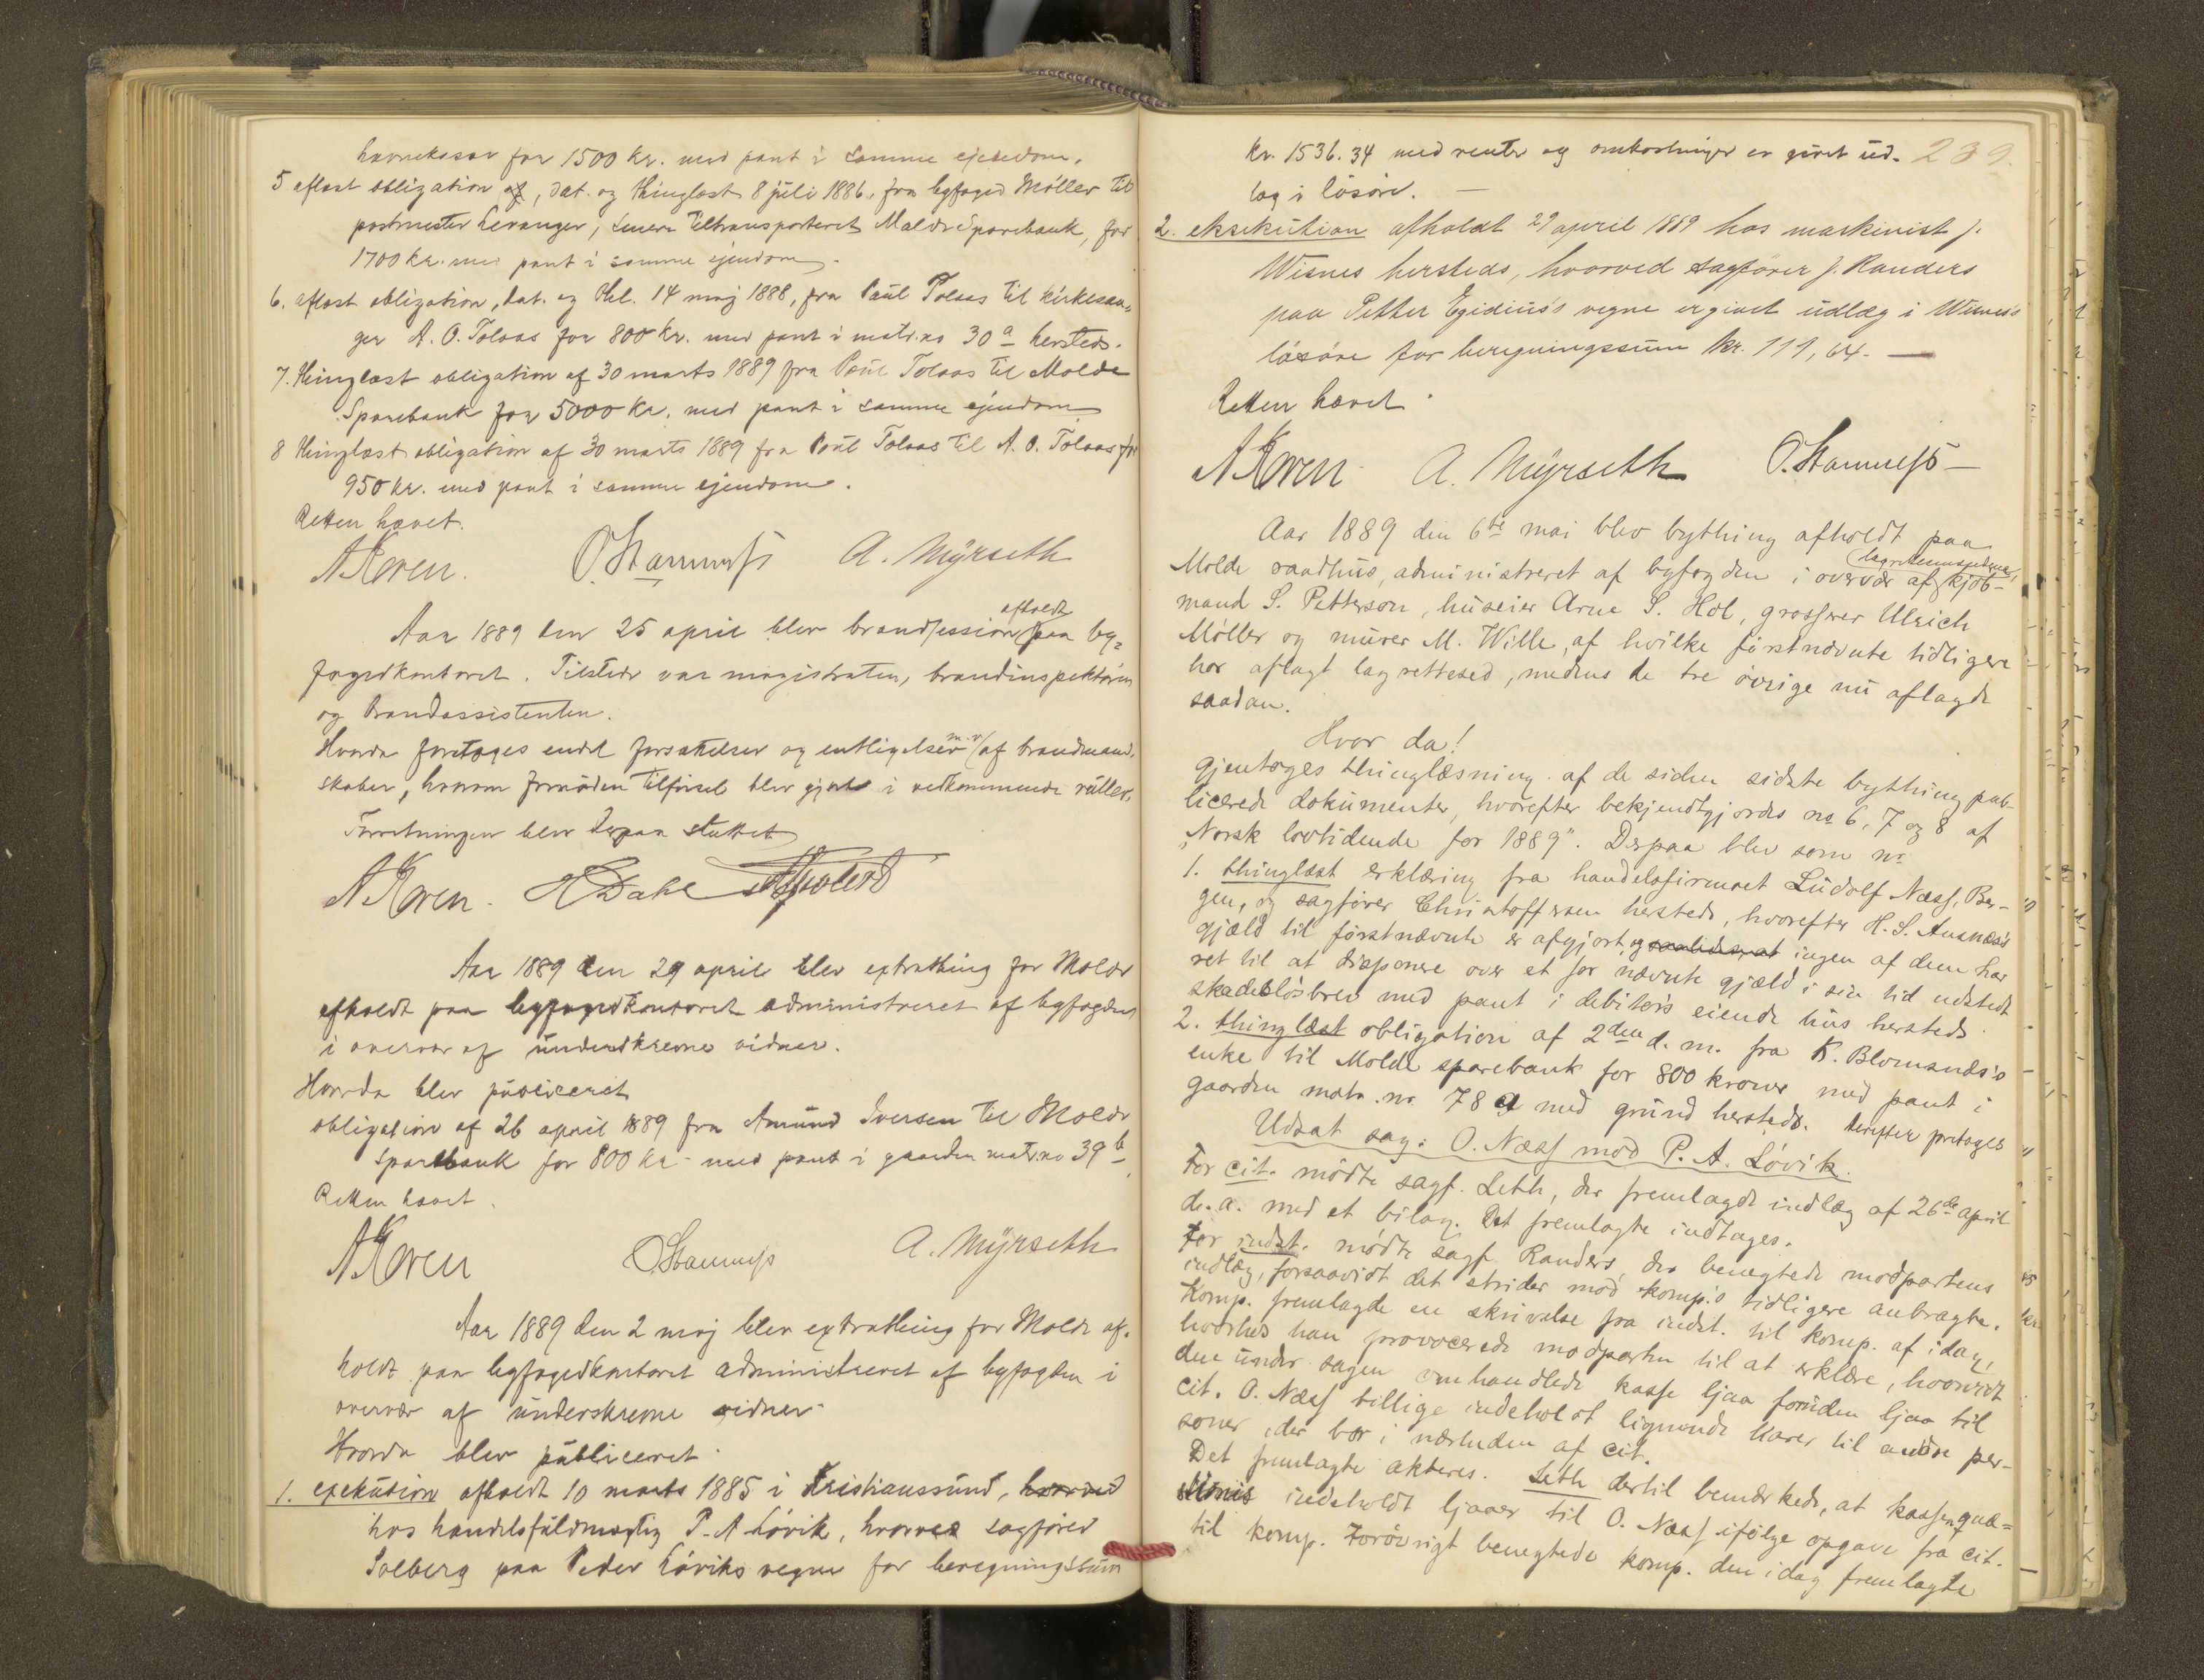 havnekassen for 1500 kr. med pant i samme ejendom.
5 aflæst obligation af, dat. og thinglæst 8 juli 1886, fra byfoged Møller til
postmester Levanger, senere tiltransporteret Molde Sparebank, for
1700 kr. med pant i samme ejendom.
6. aflæst obligation, dat. og thl. 14 maj 1888, fra Paul Tolaas til kirkesan-
ger A. O. Tolaas for 800 kr. med pant i matr.no 30a hersteds.
7. thinglæst obligation af 30 marts 1889 fra Paul Tolaas til Molde
Sparebank for 5000 kr. med pant i samme ejendom
8 thinglæst obligation af 30 marts 1889 fra Paul Tolaas til A. O. Tolaas for
950 kr. med pant i samme ejendom.
Retten hævet.
A Koren. O. Stamnesß A. Myrseth
Aar 1889 den 25 april blev brandsession afholdt paa by-
fogedkontoret. Tilstede var magistraten, brandinspektøren
og brandassistenten.
Hvorda foretoges endel forsættelser og entligelser m.v. af brandmand-
skaber, hvorom fornøden tilførsel blev gjort i vedkommende ruller.
Forretningen blev derpaa sluttet
A Koren. H Dahl
Aar 1889 den 29 april blev extrathing for Molde
afholdt paa byfogedkontoret administreret af byfogden
i overvær af underskrevne vidner.
Hvorda blev publiceret
obligation af 26 april 1889 fra Amund Iversen til Molde
Sparebank for 800 kr. med pant i gaarden matr.no 39b
Retten hævet.
A Koren O. Stamnesß A. Myrseth
Aar 1889 den 2 maj blev extrathing for Molde af-
holdt paa byfogedkontoret administreret af byfogden i
overvær af underskrevne vidner.
Hvorda blev publiceret.
1. exekution afholdt 10 marts 1885 i Kristianssund, hvorved
hos handelsfuldmægtig P. A Løvik, hvorved sagfører
Solberg paa Peder Løviks vegne for beregningssum
239.
kr. 1536.34 med renter og omkostninger er givet ud-
læg i løsøre. —
2. eksekution afholdt 29 april 1889 hos maskinist J.
Wisnes hersteds, hvorved sagfører J. Randers
paa Petter Egidius's vegne er givet udlæg i Wisnes's
løsøre for beregningssum kr. 111,64. —
Retten hævet.
A Koren. A. Myrseth O. Stamnesß —
Aar 1889 den 6te mai blev bything afholdt paa
Molde raadhus, administreret af byfogden i overvær af lagrettesmændene, kjøb-
mand S. Petterson, huseier Arne S. Hol, grosserer Ulrich
Møller og murer M. Wille, af hvilke førstnævnte tidligere
har aflagt lagrettesed, medens de tre øvrige nu aflagde
saadan.
Hvor da!
gjentoges thinglæsning af de siden sidste bything pub-
licerede dokumenter, hvorefter bekjendtgjordes no 6, 7 og 8 af
„Norsk lovtidende for 1889". Derpaa blev som no
1. thinglæst erklæring fra handelsfirmaet Ludolf Næss, Ber-
gen, og sagfører Christoffersen hersteds, hvorefter H. S. Ausnæs's
gjæld til førstnævnte er afgjort, og saaledes at ingen af dem har
ret til at disponere over et for nævnte gjæld i sin tid udstedt
skadesløsbrev med pant i debitors eiende hus hersteds.
2. thinglæst obligation af 2den d. m. fra K. Blomsnæs's
enke til Molde sparebank for 800 kroner med pant i
gaarden matr. no. 78 a med grund hersteds. Derefter foretoges
Udsat sag: O. Næss mod P. A. Løvik.
For cit. mødte sagf. Leth, der fremlagde indlæg af 26de april
d. a. med et bilag. Det fremlagte indtages.
For indst. mødte sagf. Randers, der benegtede modpartens
indlæg, forsaavidt det strider mod komp.'s tidligere anbragte.
Komp. fremlagde en skrivelse fra indst. til komp. af idag,
hvorhos han provocerede modparten til at erklære, hvorvidt
den under sagen omhandlede kasse ljaa foruden ljaa til
cit. O. Næss tillige indeholdt lignende varer til andre per-
soner, der bor i nærheden af cit.
Det fremlagte akteres. Leth dertil bemærkede, at kassen quæ-
stionis indeholdt ljaaer til O. Næss ifølge opgave fra cit.
til komp. Forøvrigt benegtede komp. den idag fremlagte